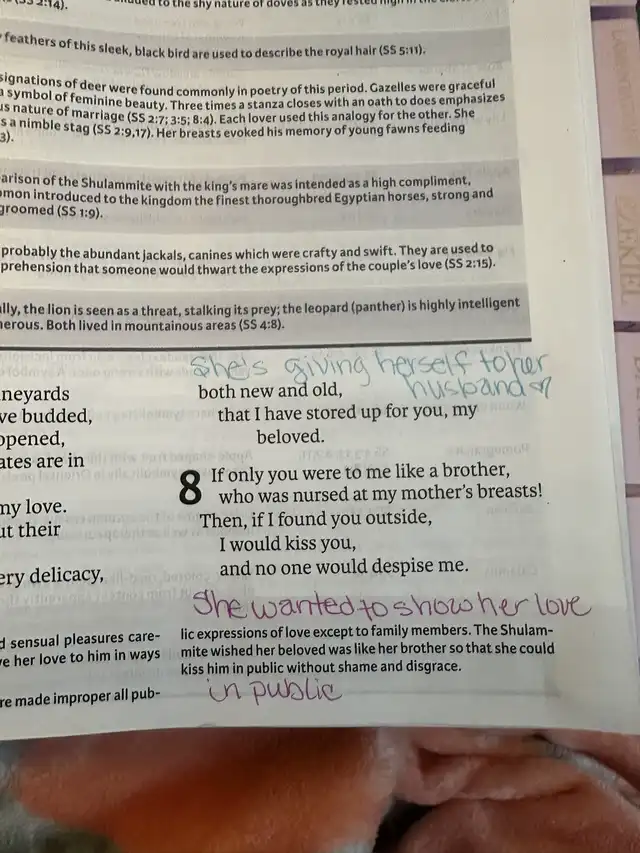 2:14).
to the shy nature of doves as they rested high in the
feathers of this sleek, black bird are used to describe the royal hair (SS 5:11).
signations of deer were found commonly in poetry of this period. Gazelles were graceful
a symbol of feminine beauty. Three times a stanza closes with an oath to does emphasizes
us nature of marriage (SS 2:7; 3:5; 8:4). Each lover used this analogy for the other. She
s a nimble stag (SS 2:9,17). Her breasts evoked his memory of young fawns feeding
3).
arison of the Shulammite with the king's mare was intended as a high compliment,
omon introduced to the kingdom the finest thoroughbred Egyptian horses, strong and
groomed (SS 1:9).
probably the abundant jackals, canines which were crafty and swift. They are used to
prehension that someone would thwart the expressions of the couple's love (SS 2:15).
ally, the lion is seen as a threat, stalking its prey; the leopard (panther) is highly intelligent
nerous. Both lived in mountainous areas (SS 4:8).
She's giving herself to her
husband
neyards
ve budded,
opened,
ates are in
my love.
ut their
ery delicacy,
both new and old,
that I have stored up for you, my
beloved.
8 If only you were to me like a brother,
who was nursed at my mother's breasts!
Then, if I found you outside,
I would kiss you,
and no one would despise me.
She wanted to show her love
in public
d sensual pleasures care-
ve her love to him in ways
re made improper all pub-
lic expressions of love except to family members. The Shulam-
mite wished her beloved was like her brother so that she could
kiss him in public without shame and disgrace.
EZEKIEL